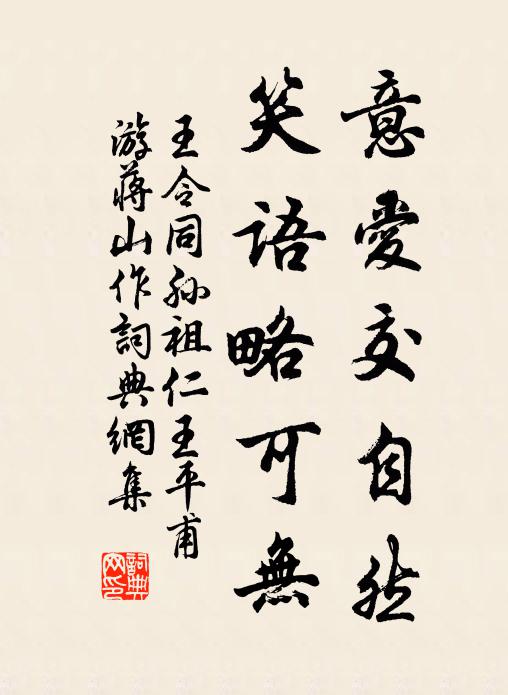 意愛交自然
笑語略可無
王令同孫祖仁王平甫
游蔣山作詞典網集
詞典网印